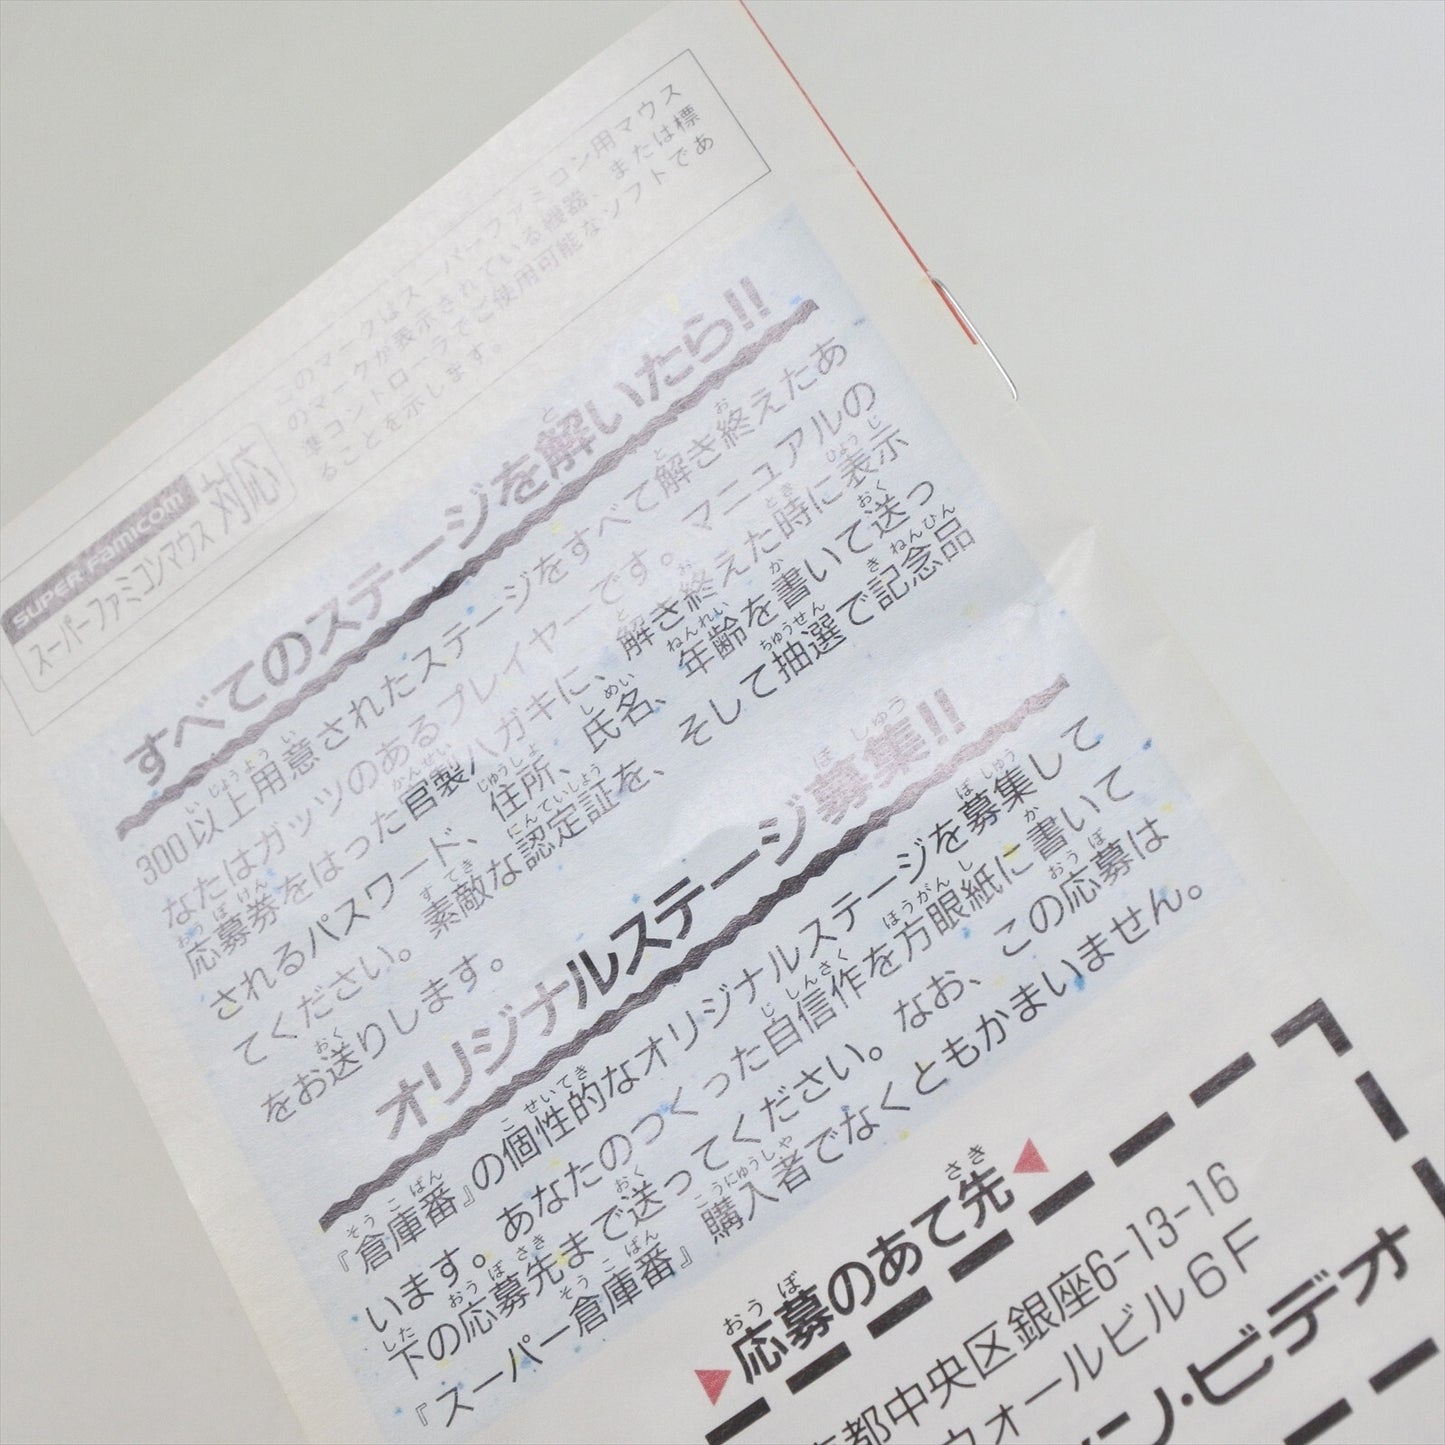 SUPER FAMICOM
スーパーファミコンマウス
対応
このマークはスーパーファミコン用マウス
のマークが表示されている機器、または標
準コントローラでご使用可能なソフトであ
ることを示します。
すべてのステージを解いたら!!
300以上用意されたステージをすべて解き終えたあ
なたはガッツのあるプレイヤーです。マニュアルの
応募券をはった官製ハガキに、解き終えた時に表示
されるパスワード、住所、氏名、年齢を書いて送っ
てください。素敵な認定証を、そして抽選で記念品
をお送りします。
オリジナルステージ募集!!
『倉庫番』の個性的なオリジナルステージを募集して
います。あなたのつくった自信作を方眼紙に書いて
下の応募先まで送ってください。なお、この応募は
『スーパー倉庫番』購入者でなくともかまいません。
応募のあて先
都中央区銀座6-13-16
ォールビル6F
ン・ビデオ